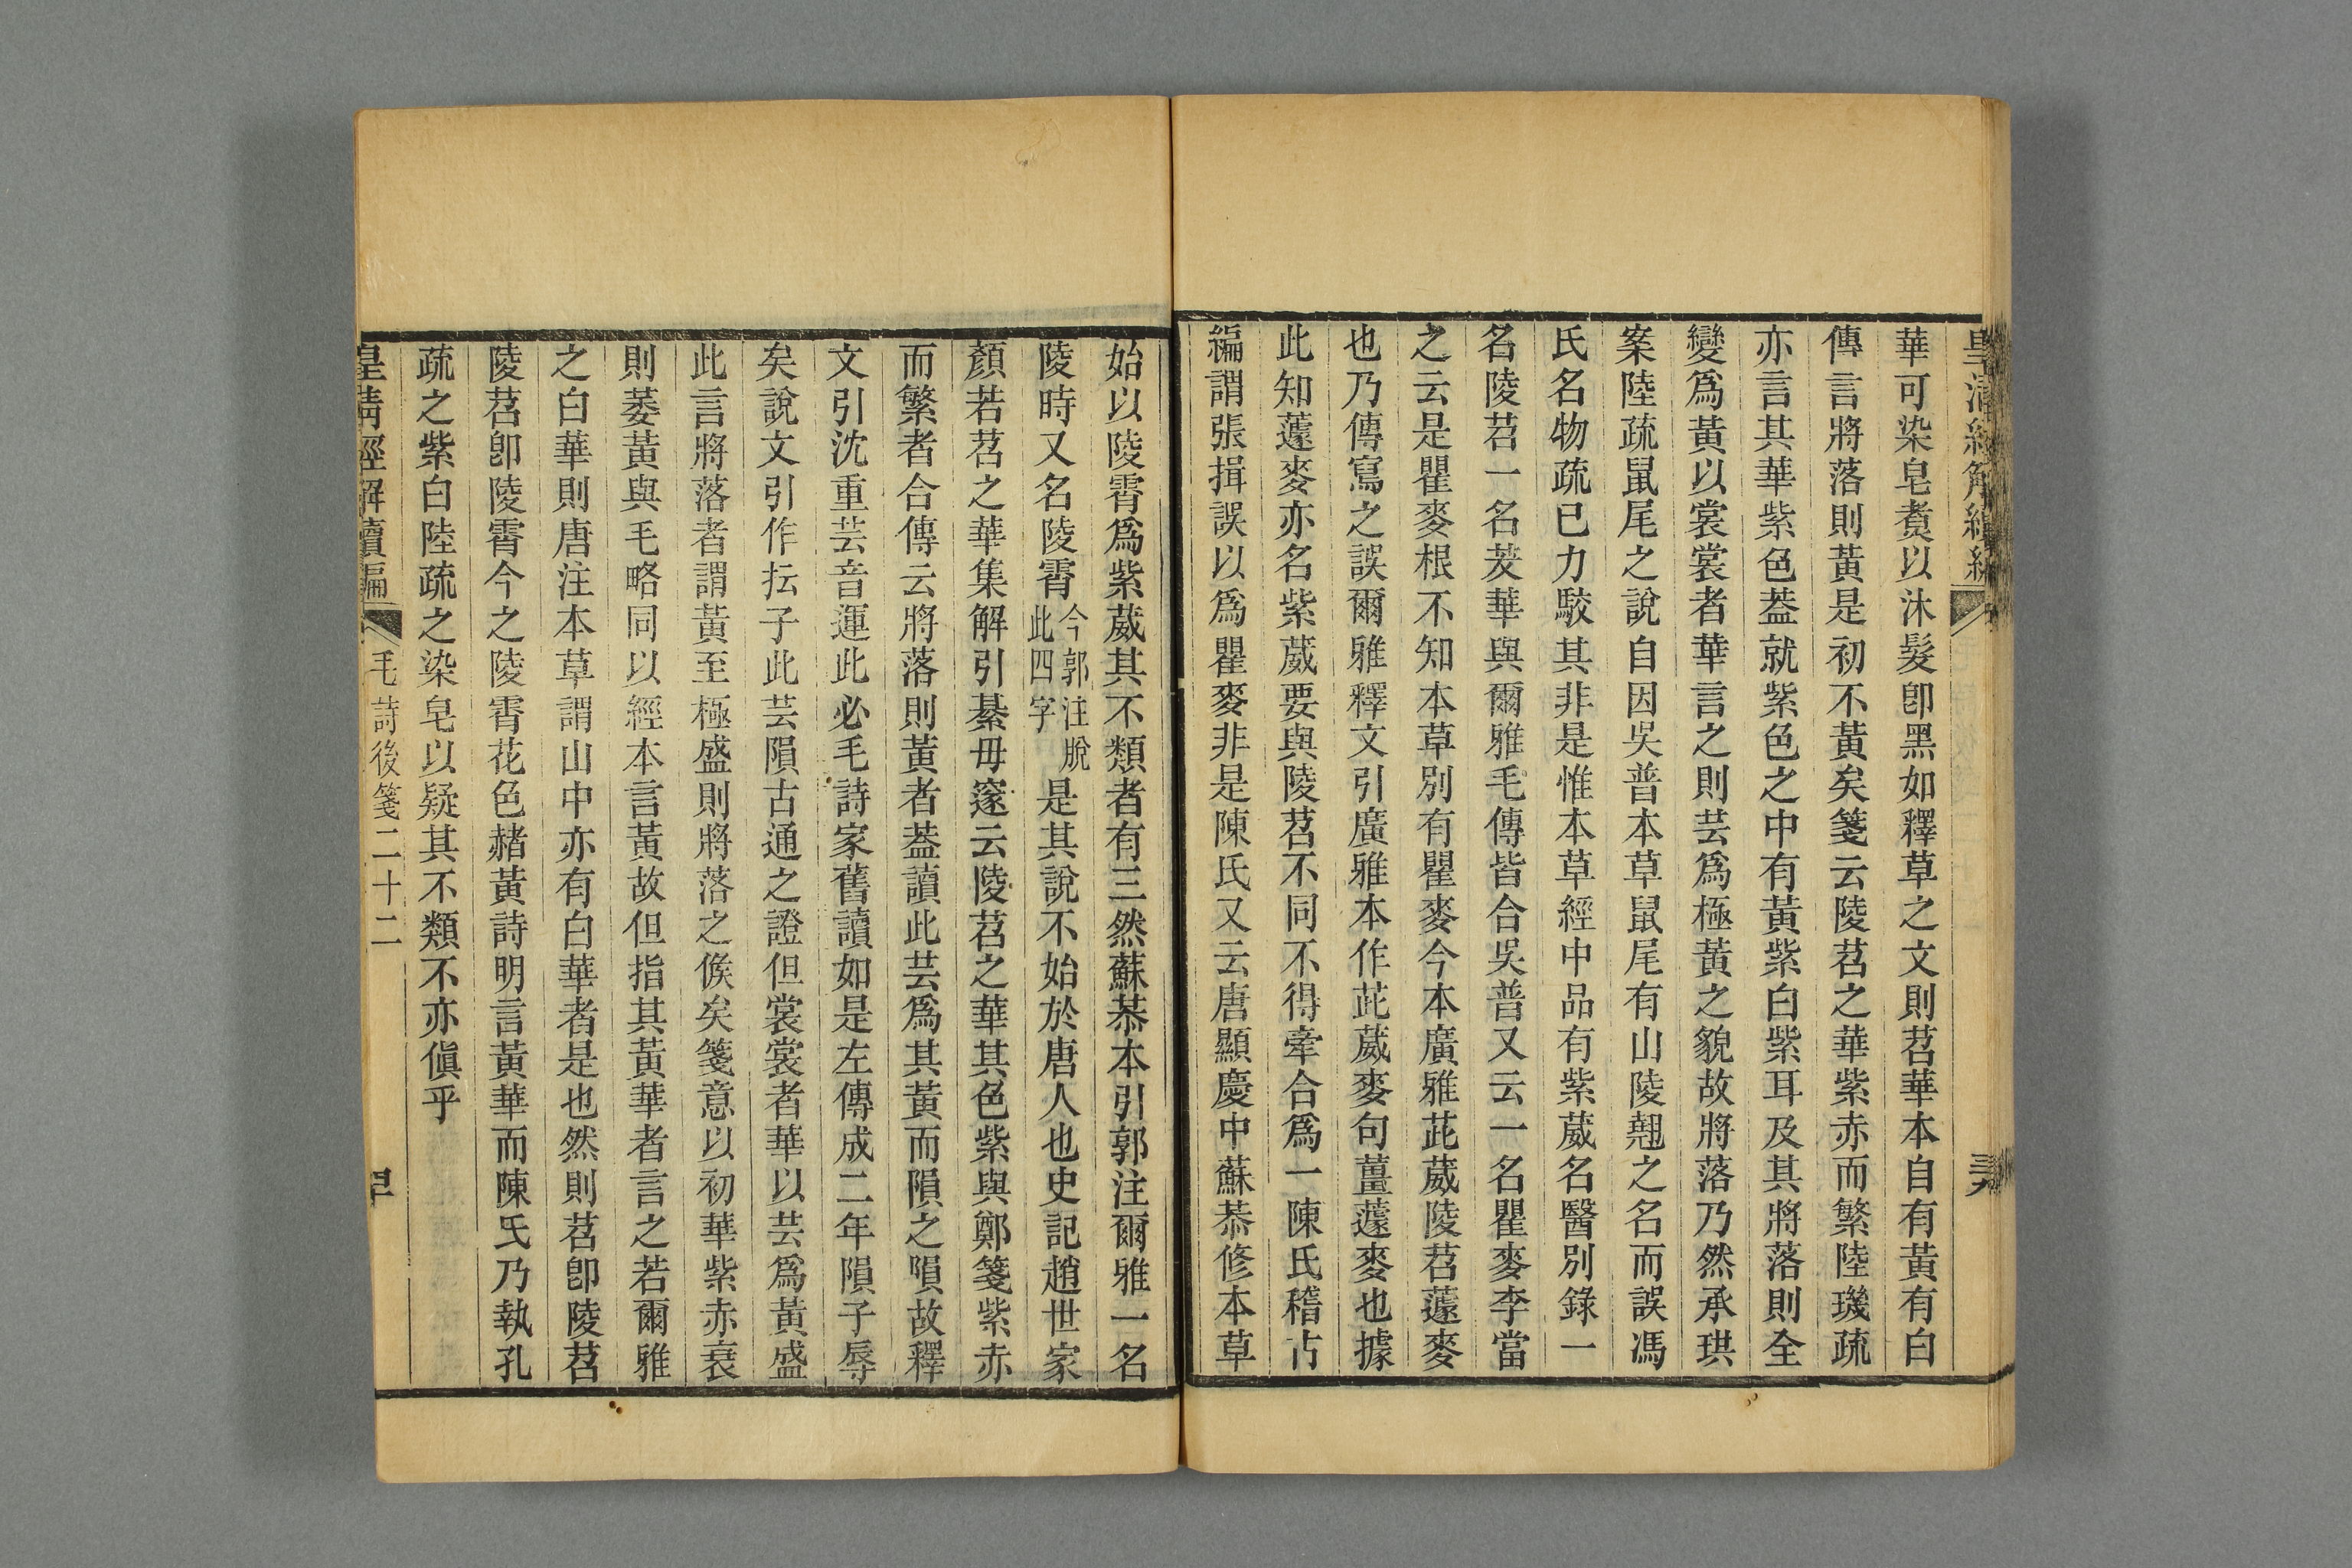 皇清經解續編
華可染皂煑以沐髮卽黑如釋草之文則苕華本自有黃有白
傳言將落則黃是初不黃矣箋云陵苕之華紫赤而繁陸璣疏
亦言其華紫色葢就紫色之中有黃紫白紫耳及其將落則全
變爲黃以裳裳者華言之則芸爲極黃之貌故將落乃然承珙
案陸疏鼠尾之說自因吳普本草鼠尾有山陵翹之名而誤馮
氏名物疏已力駮其非是惟本草經中品有紫葳名醫別錄一
名陵苕一名茇華與爾雅毛傳皆合吳普又云一名瞿麥李當
之云是瞿麥根不知本草別有瞿麥今本廣雅茈葳陵苕蘧麥
也乃傳寫之誤爾雅釋文引廣雅本作茈葳麥句薑蘧麥也據
此知蘧麥亦名紫葳要與陵苕不同不得牽合爲一陳氏稽古
編謂張揖誤以爲瞿麥非是陳氏又云唐顯慶中蘇恭修本草
始以陵霄爲紫葳其不類者有三然蘇恭本引郭注爾雅一名
陵時又名陵霄今郭注脫此四字是其說不始於唐人也史記趙世家
顏若苕之華集解引綦毋邃云陵苕之華其色紫與鄭箋紫赤
而繁者合傳云將落則黃者葢讀此芸爲其黃而隕之隕故釋
文引沈重芸音運此必毛詩家舊讀如是左傳成二年隕子辱
矣說文引作抎子此芸隕古通之證但裳裳者華以芸爲黃盛
此言將落者謂黃至極盛則將落之候矣箋意以初華紫赤衰
則萎黃與毛略同以經本言黃故但指其黃華者言之若爾雅
之白華則唐注本草謂山中亦有白華者是也然則苕卽陵苕
陵苕卽陵霄今之陵霄花色赭黃詩明言黃華而陳氏乃執孔
疏之紫白陸疏之染皂以疑其不類不亦傎乎
皇清經解續編
毛詩後箋二十二